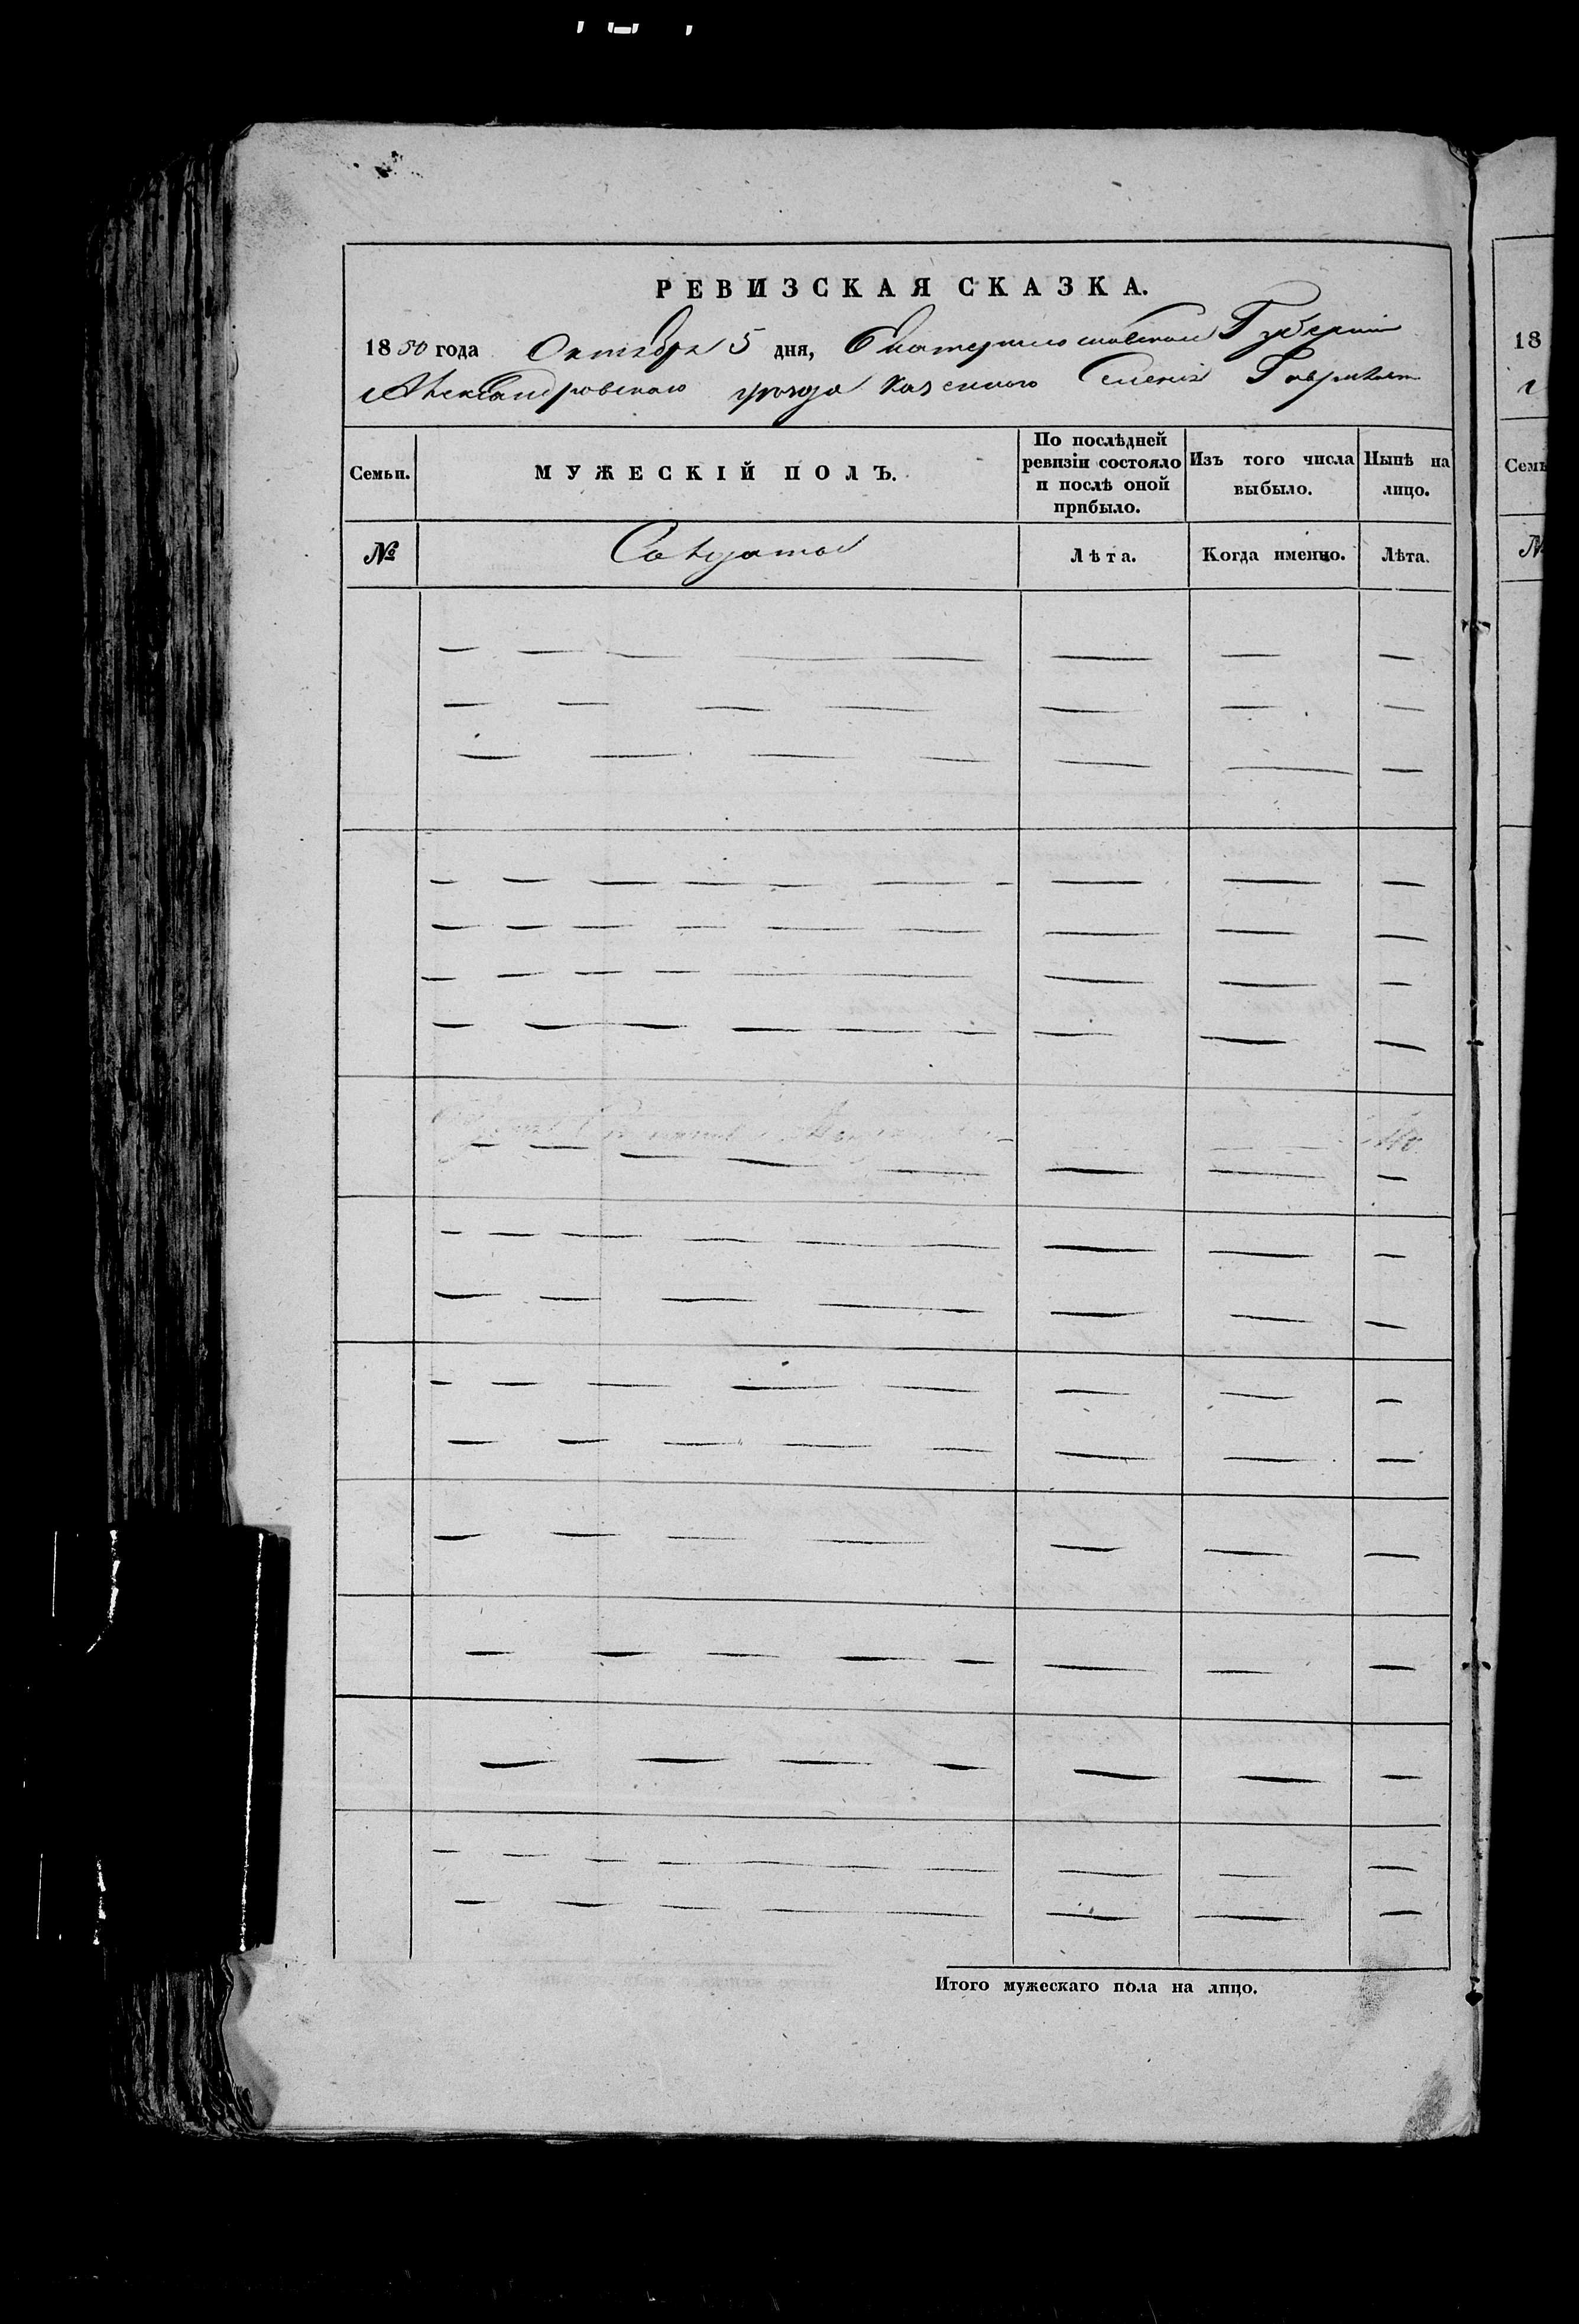 РЕВИЗСКАЯ СКАЗКА.
1850 года Октября 5 дня, Екатеринославской Губернии
Александровского уезда казенного Селения Гавриловки
Семьи.
МУЖЕСКІЙ ПОЛЪ.
По послѣдней
ревизіи состояло
и послѣ оной
прибыло.
Изъ того числа
выбыло.
Нынѣ на
лицо.
№
Солдаты
Лѣта.
Когда именно.
Лѣта.
Итого мужескаго пола на лицо.
18
Семь
№